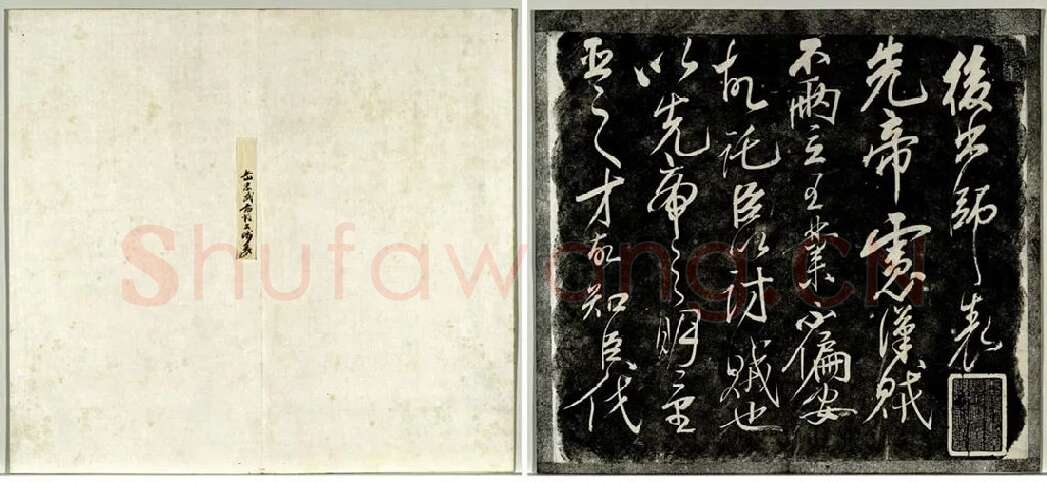 後出師表
先帝慮漢賊
不兩立王業不偏安
故託臣以討賊也
以先帝之明量
臣之才故知臣伐
岳忠武出師表
Shufawang.cn